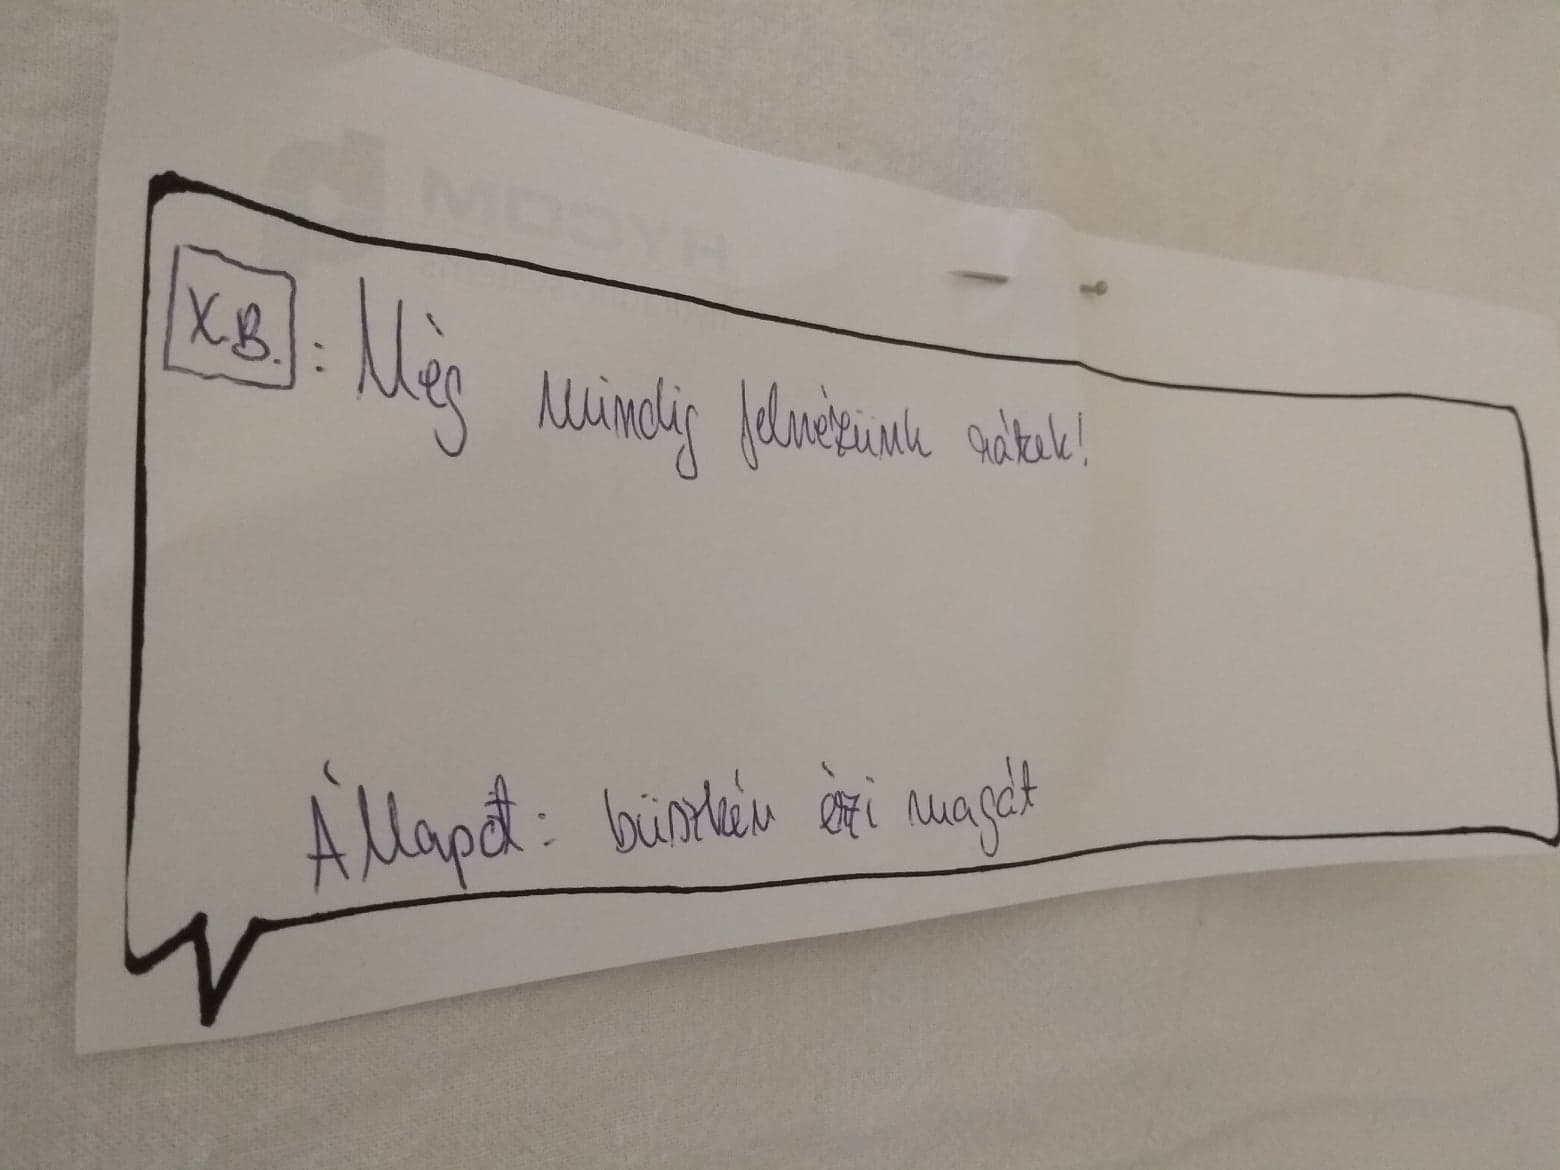 HYCOM
X.B.: Még mindig felnézünk rátok!
Állapot: büszkén érzi magát